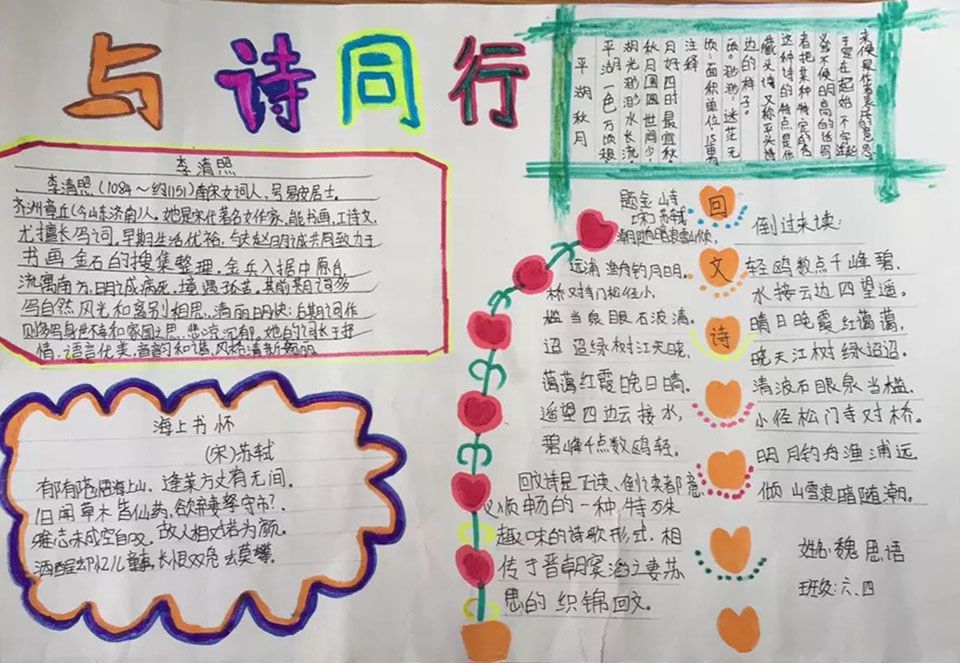 与诗同行
李清照
李清照(1084～约1151)南宋女词人,号易安居士,
齐洲章丘(今山东济南)人。她是宋代著名女作家,能书画,工诗文,
尤擅长写词。早期生活优裕,与夫赵明诚共同致力于
书画金石的搜集整理。金兵入据中原后,
流寓南方,明诚病死,境遇孤苦。其前期词多
写自然风光和离别相思,清丽明快;后期词作
则多写身世不幸和家国之思,悲凉沉郁。她的词长于抒
情,语言优美,音韵和谐,风格清新婉丽。
海上书怀
(宋)苏轼
蓬莱方丈有无间。
旧闻草木皆仙药,欲弃妻孥守市?
故人相对若为颜。
酒醒却忆儿童事,长恨双凫去莫攀。
平湖秋月
平湖一色万顷秋
湖光渺渺水长流
秋月圆圆世间少
月好四时最宜秋
注释
顷:面积单位,15
顷。渺渺:迷茫无
边的样子。
藏头诗,又称平头诗
这种诗的特点是作
者把某种特定
题金山诗
苏轼
潮随暗浪雪山倾,
远浦渔舟钓月明。
桥对寺门松径小,
槛当泉眼石波清。
迢迢绿树江天晓,
蔼蔼红霞晚日晴。
遥望四边云接水,
碧峰千点数鸥轻。
回文诗是正读、倒读都意
义顺畅的一种特殊
趣味的诗歌形式,相
传于晋朝窦滔之妻苏
思的织锦回文。
回
文
诗
倒过来读:
轻鸥数点千峰碧,
水接云边四望遥。
晴日晚霞红蔼蔼,
晓天江树绿迢迢。
清波石眼泉当槛,
小径松门寺对桥。
明月钓舟渔浦远,
倾山雪浪暗随潮。
姓名:魏思语
班级:六、四